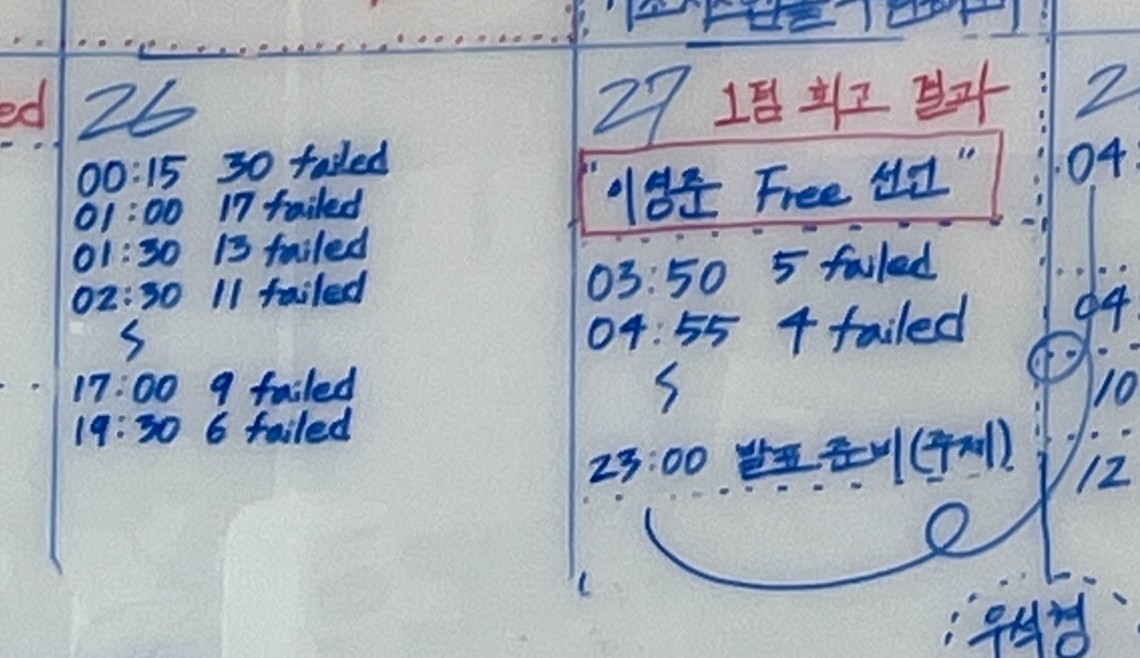 ed
26
00:15 30 failed
01:00 17 failed
01:30 13 failed
02:30 11 failed
17:00 9 failed
19:30 6 failed
27 1팀 회고 결과
"이영준 Free 선언"
03:50 5 failed
04:55 4 failed
23:00 발표 준비(주제)
2
04:
04
10
12
우석경